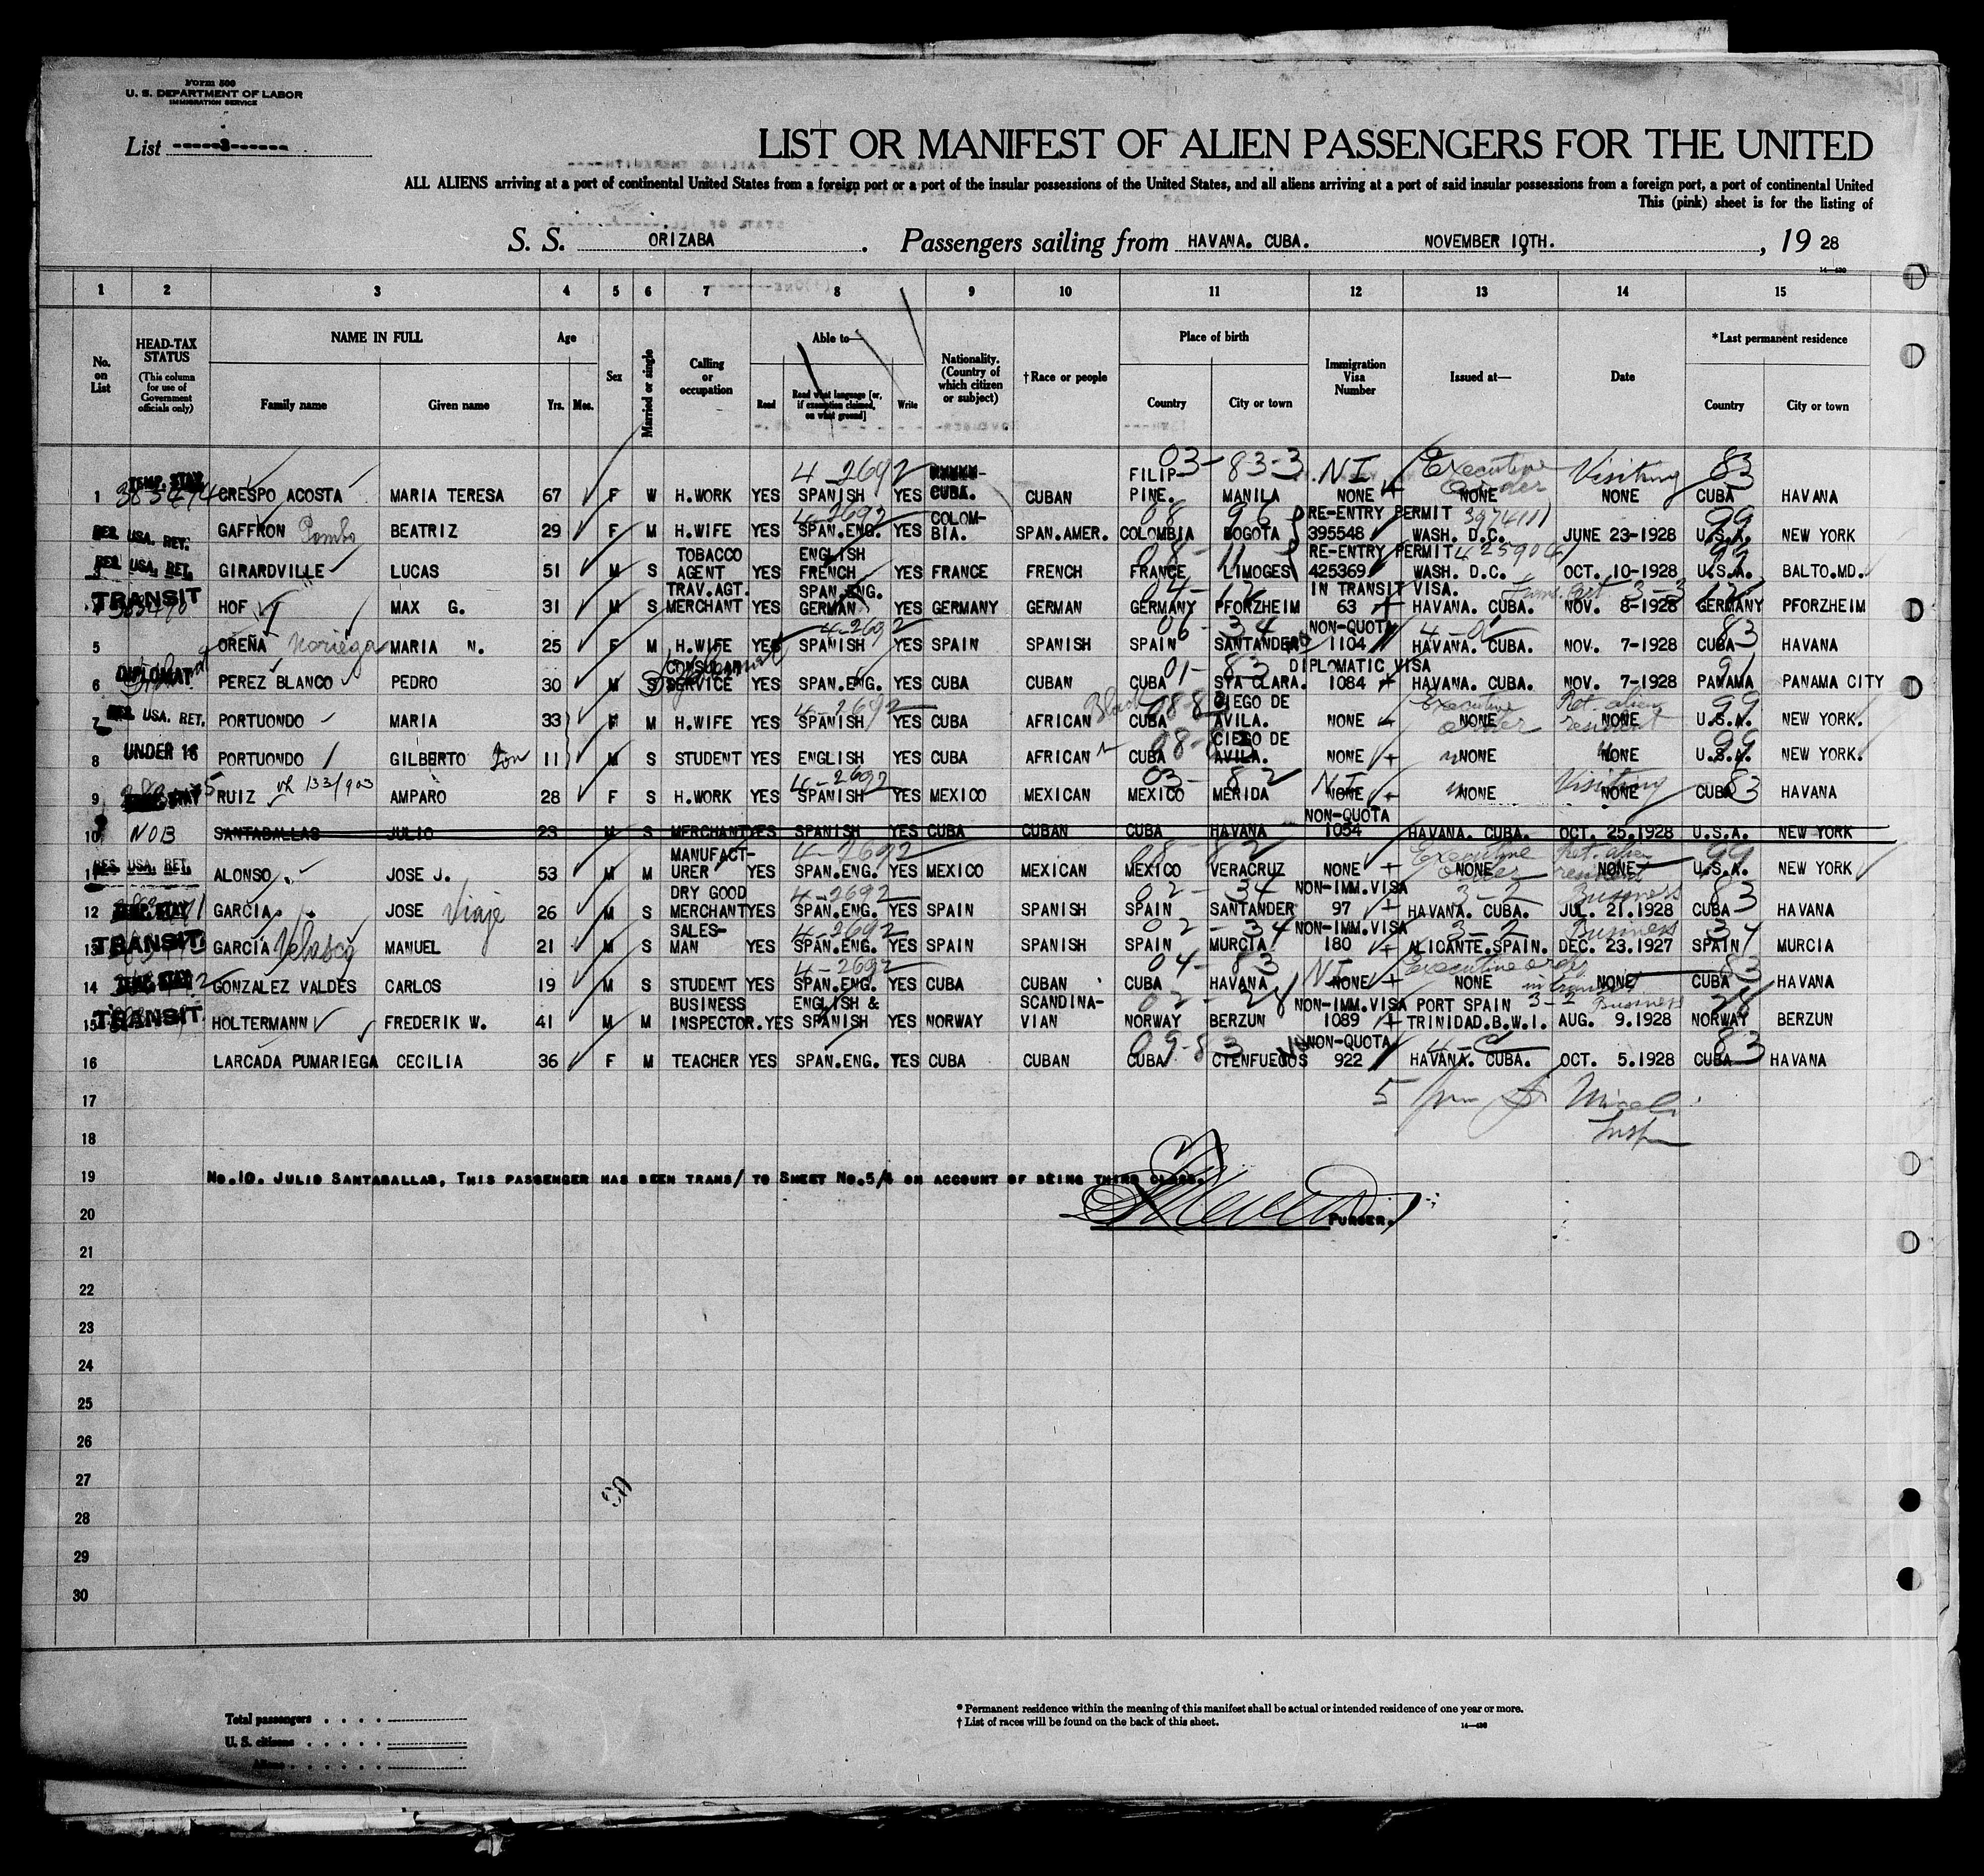 Form 500
U. S. DEPARTMENT OF LABOR
IMMIGRATION SERVICE
List 3
LIST OR MANIFEST OF ALIEN PASSENGERS FOR THE UNITED
ALL ALIENS arriving at a port of continental United States from a foreign port or a port of the insular possessions of the United States, and all aliens arriving at a port of said insular possessions from a foreign port, a port of continental United
This (pink) sheet is for the listing of
S. S. ORIZABA . Passengers sailing from HAVANA. CUBA. NOVEMBER 10TH. , 19 28
1 2 3 4 5 6 7 8 9 10 11 12 13 14 15
No. on List
HEAD-TAX STATUS (This column for use of Government officials only)
NAME IN FULL Family name Given name
Age Yrs. Mos.
Sex
Married or single
Calling or occupation
Able to— Read Read what language [or, if exemption claimed, on what ground] Write
Nationality. (Country of which citizen or subject)
†Race or people
Place of birth Country City or town
Immigration Visa Number
Issued at—
Date
*Last permanent residence Country City or town
1 TEMP. STAY CRESPO ACOSTA MARIA TERESA 67 F W H.WORK YES SPANISH 4-2692 YES CUBA. CUBAN FILIP- PINE. MANILA 03-83-3 NI NONE Executive order NONE Visiting NONE 83 CUBA HAVANA
RES. USA. RET. GAFFRON Pombo BEATRIZ 29 F M H.WIFE YES SPAN.ENG. 4-2692 YES COLOM- BIA. SPAN.AMER. COLOMBIA BOGOTA 08 96 RE-ENTRY PERMIT 395548 WASH. D.C. JUNE 23-1928 99 U.S.A. NEW YORK
3 RES. USA. RET. GIRARDVILLE LUCAS 51 M S TOBACCO AGENT YES ENGLISH FRENCH YES FRANCE FRENCH FRANCE LIMOGES 08-11 RE-ENTRY PERMIT 425904 425369 WASH. D.C. OCT. 10-1928 99 U.S.A. BALTO.MD.
TRANSIT HOF MAX G. 31 M S TRAV.AGT. MERCHANT YES SPAN.ENG. GERMAN YES GERMANY GERMAN GERMANY PFORZHEIM 04-12 IN TRANSIT VISA. 63 HAVANA. CUBA. 3-3 NOV. 8-1928 12 GERMANY PFORZHEIM
5 OREÑA Noriega MARIA N. 25 F M H.WIFE YES SPANISH 4-2692 YES SPAIN SPANISH SPAIN SANTANDER 06-34 NON-QUOTA 1104 HAVANA. CUBA. NOV. 7-1928 83 CUBA HAVANA
6 DIPLOMAT PEREZ BLANCO PEDRO 30 M S CONSULAR SERVICE Diplomat YES SPAN.ENG. YES CUBA CUBAN CUBA STA CLARA. 01-83 DIPLOMATIC VISA 1084 HAVANA. CUBA. NOV. 7-1928 91 PANAMA PANAMA CITY
7 RES. USA. RET. PORTUONDO MARIA 33 F M H.WIFE YES SPANISH 4-2692 YES CUBA AFRICAN Black CUBA CIEGO DE AVILA. NONE Executive order NONE Ret. alien resident NONE 99 U.S.A. NEW YORK.
8 UNDER 16 PORTUONDO GILBERTO Son 11 M S STUDENT YES ENGLISH YES CUBA AFRICAN CUBA CIEGO DE AVILA. NONE NONE NONE 99 U.S.A. NEW YORK.
9 TEMP. STAY RUIZ 133/903 AMPARO 28 F S H.WORK YES SPANISH 4-2692 YES MEXICO MEXICAN MEXICO MERIDA 03-82 NI NONE NONE Visiting NONE 83 CUBA HAVANA
10 NOB SANTABALLAS JULIO 23 M S MERCHANT YES SPANISH YES CUBA CUBAN CUBA HAVANA NON-QUOTA 1054 HAVANA. CUBA. OCT. 25.1928 U.S.A. NEW YORK
11 RES. USA. RET. ALONSO JOSE J. 53 M M MANUFACT- URER YES SPAN.ENG. 4-2692 YES MEXICO MEXICAN MEXICO VERACRUZ 08-82 NONE Executive order NONE Ret. alien resident NONE 99 U.S.A. NEW YORK
12 TEMP. STAY GARCIA JOSE Viaje 26 M S DRY GOOD MERCHANT YES SPAN.ENG. 4-2692 YES SPAIN SPANISH SPAIN SANTANDER 02-34 NON-IMM.VISA 97 3-2 HAVANA. CUBA. Business JUL. 21.1928 83 CUBA HAVANA
13 TRANSIT GARCIA Velasco MANUEL 21 M S SALES- MAN YES SPAN.ENG. 4-2692 YES SPAIN SPANISH SPAIN MURCIA 02-34 NON-IMM.VISA 180 3-2 ALICANTE.SPAIN. Business DEC. 23.1927 34 SPAIN MURCIA
14 TEMP. STAY GONZALEZ VALDES CARLOS 19 M S STUDENT YES SPAN.ENG. 4-2692 YES CUBA CUBAN CUBA HAVANA 04-83 NI NONE Executive order NONE in transit NONE 83 CUBA HAVANA
15 TRANSIT HOLTERMANN FREDERIK W. 41 M M BUSINESS INSPECTOR. YES ENGLISH & SPANISH YES NORWAY SCANDINA- VIAN NORWAY BERZUN 02-28 NON-IMM.VISA 1089 PORT SPAIN TRINIDAD.B.W.I. 3-2 Business AUG. 9.1928 28 NORWAY BERZUN
16 LARCADA PUMARIEGA CECILIA 36 F M TEACHER YES SPAN.ENG. YES CUBA CUBAN CUBA CIENFUEGOS 09-83 NON-QUOTA 922 HAVANA. CUBA. OCT. 5.1928 83 CUBA HAVANA
17
18 Insp
19 No.10. JULIO SANTABALLAS, THIS PASSENGER HAS BEEN TRANS/ TO SHEET No.5/4 ON ACCOUNT OF BEING THIRD CLASS.
20 PURSER.
21
22
23
24
25
26
27
28
29
30
Total passengers . . . .
U. S. citizens . . . . .
Aliens . . . . . .
* Permanent residence within the meaning of this manifest shall be actual or intended residence of one year or more.
† List of races will be found on the back of this sheet.
14—430